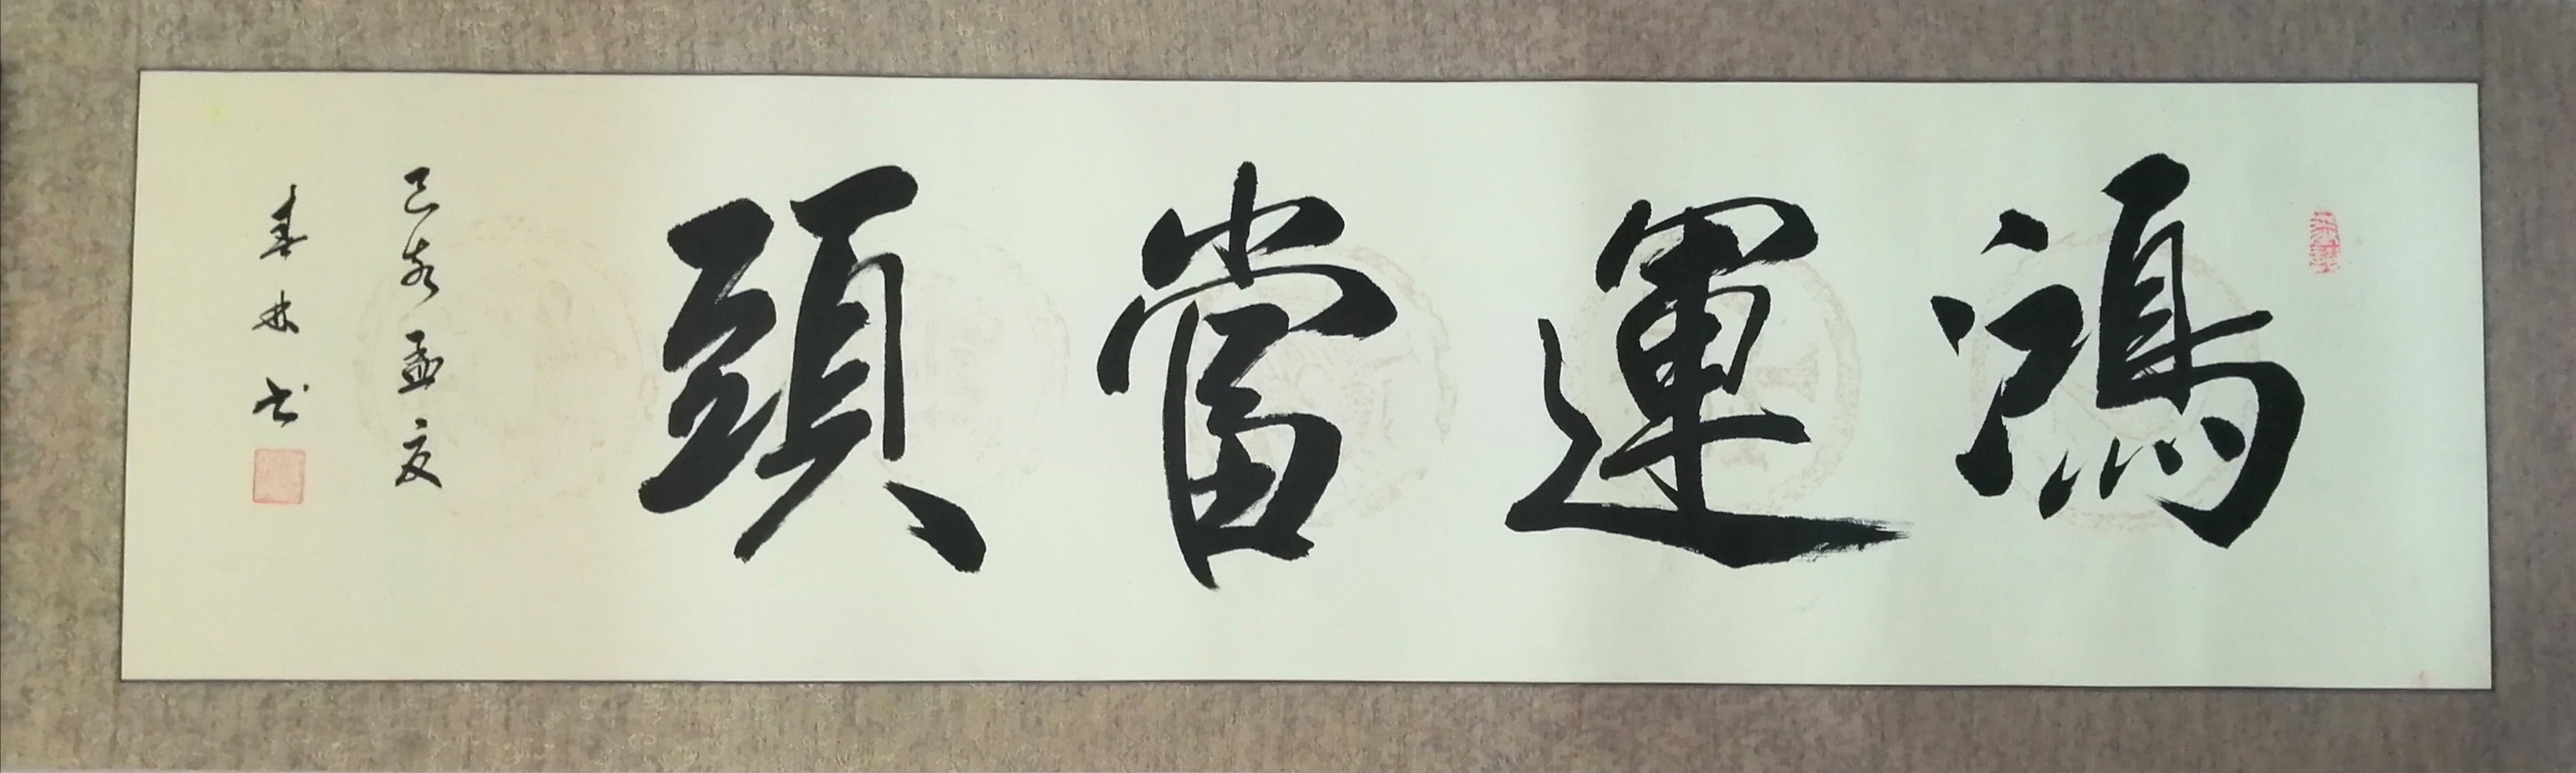 鴻運當頭
己亥孟夏
春林书